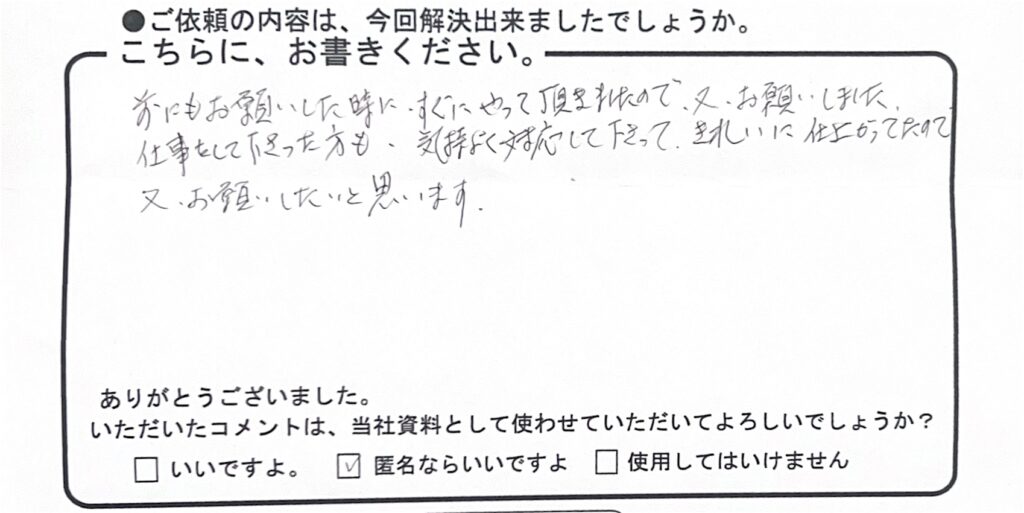 ●ご依頼の内容は、今回解決出来ましたでしょうか。
こちらに、お書きください。
前にもお願いした時に、すぐにやって頂きれたので、又、お願いしました。
仕事をして下さった方も、気持よく対応して下さって、きれいに仕上がってたので
又、お願いしたいと思います。
ありがとうございました。
いただいたコメントは、当社資料として使わせていただいてよろしいでしょうか？
いいですよ。 ✓ 匿名ならいいですよ 使用してはいけません